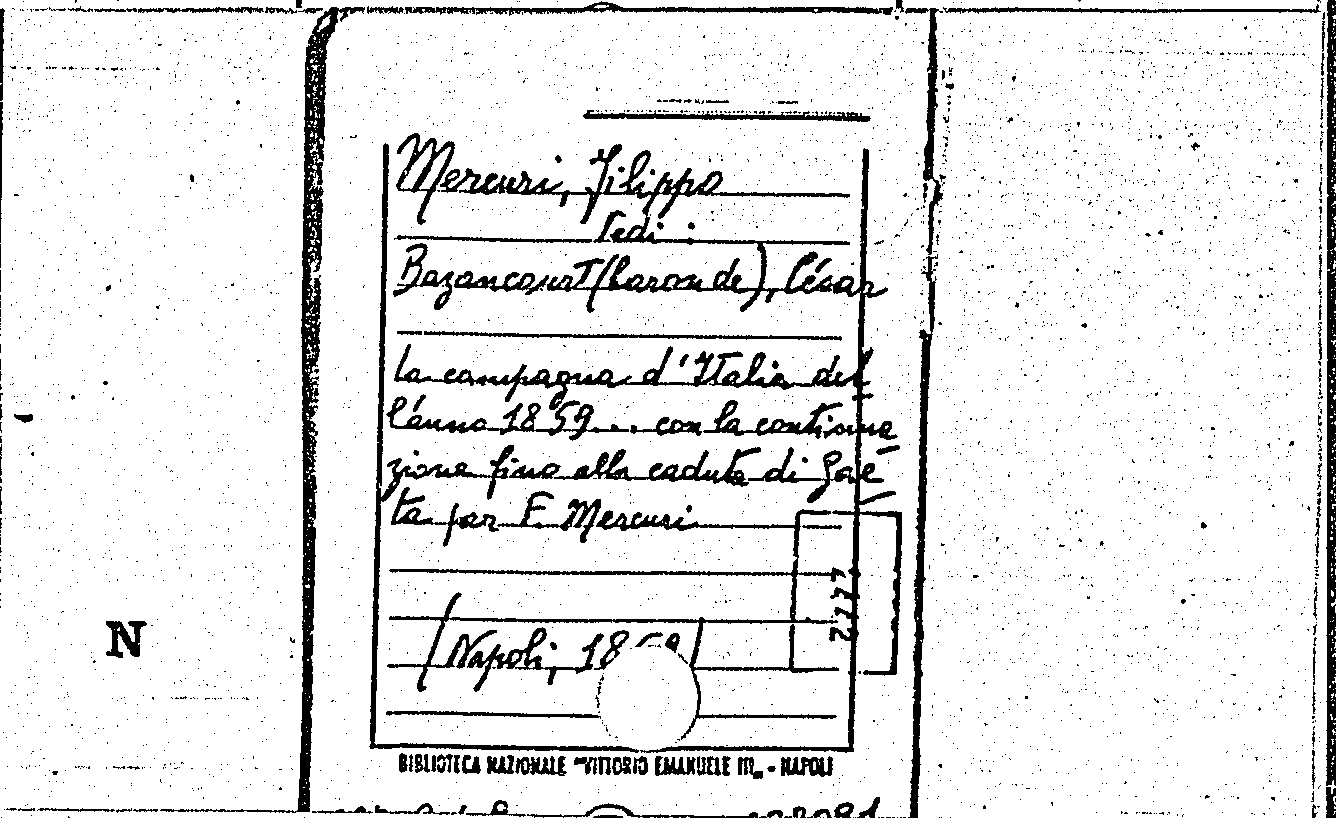 Mercuri, Filippo
Vedi :
Bazancourt (baron de), César
La campagna d'Italia del
l'anno 1859... con la continua
zione fino alla caduta di Gae
ta par F. Mercuri
(Napoli, 18
BIBLIOTECA NAZIONALE "VITTORIO EMANUELE III" - NAPOLI
N